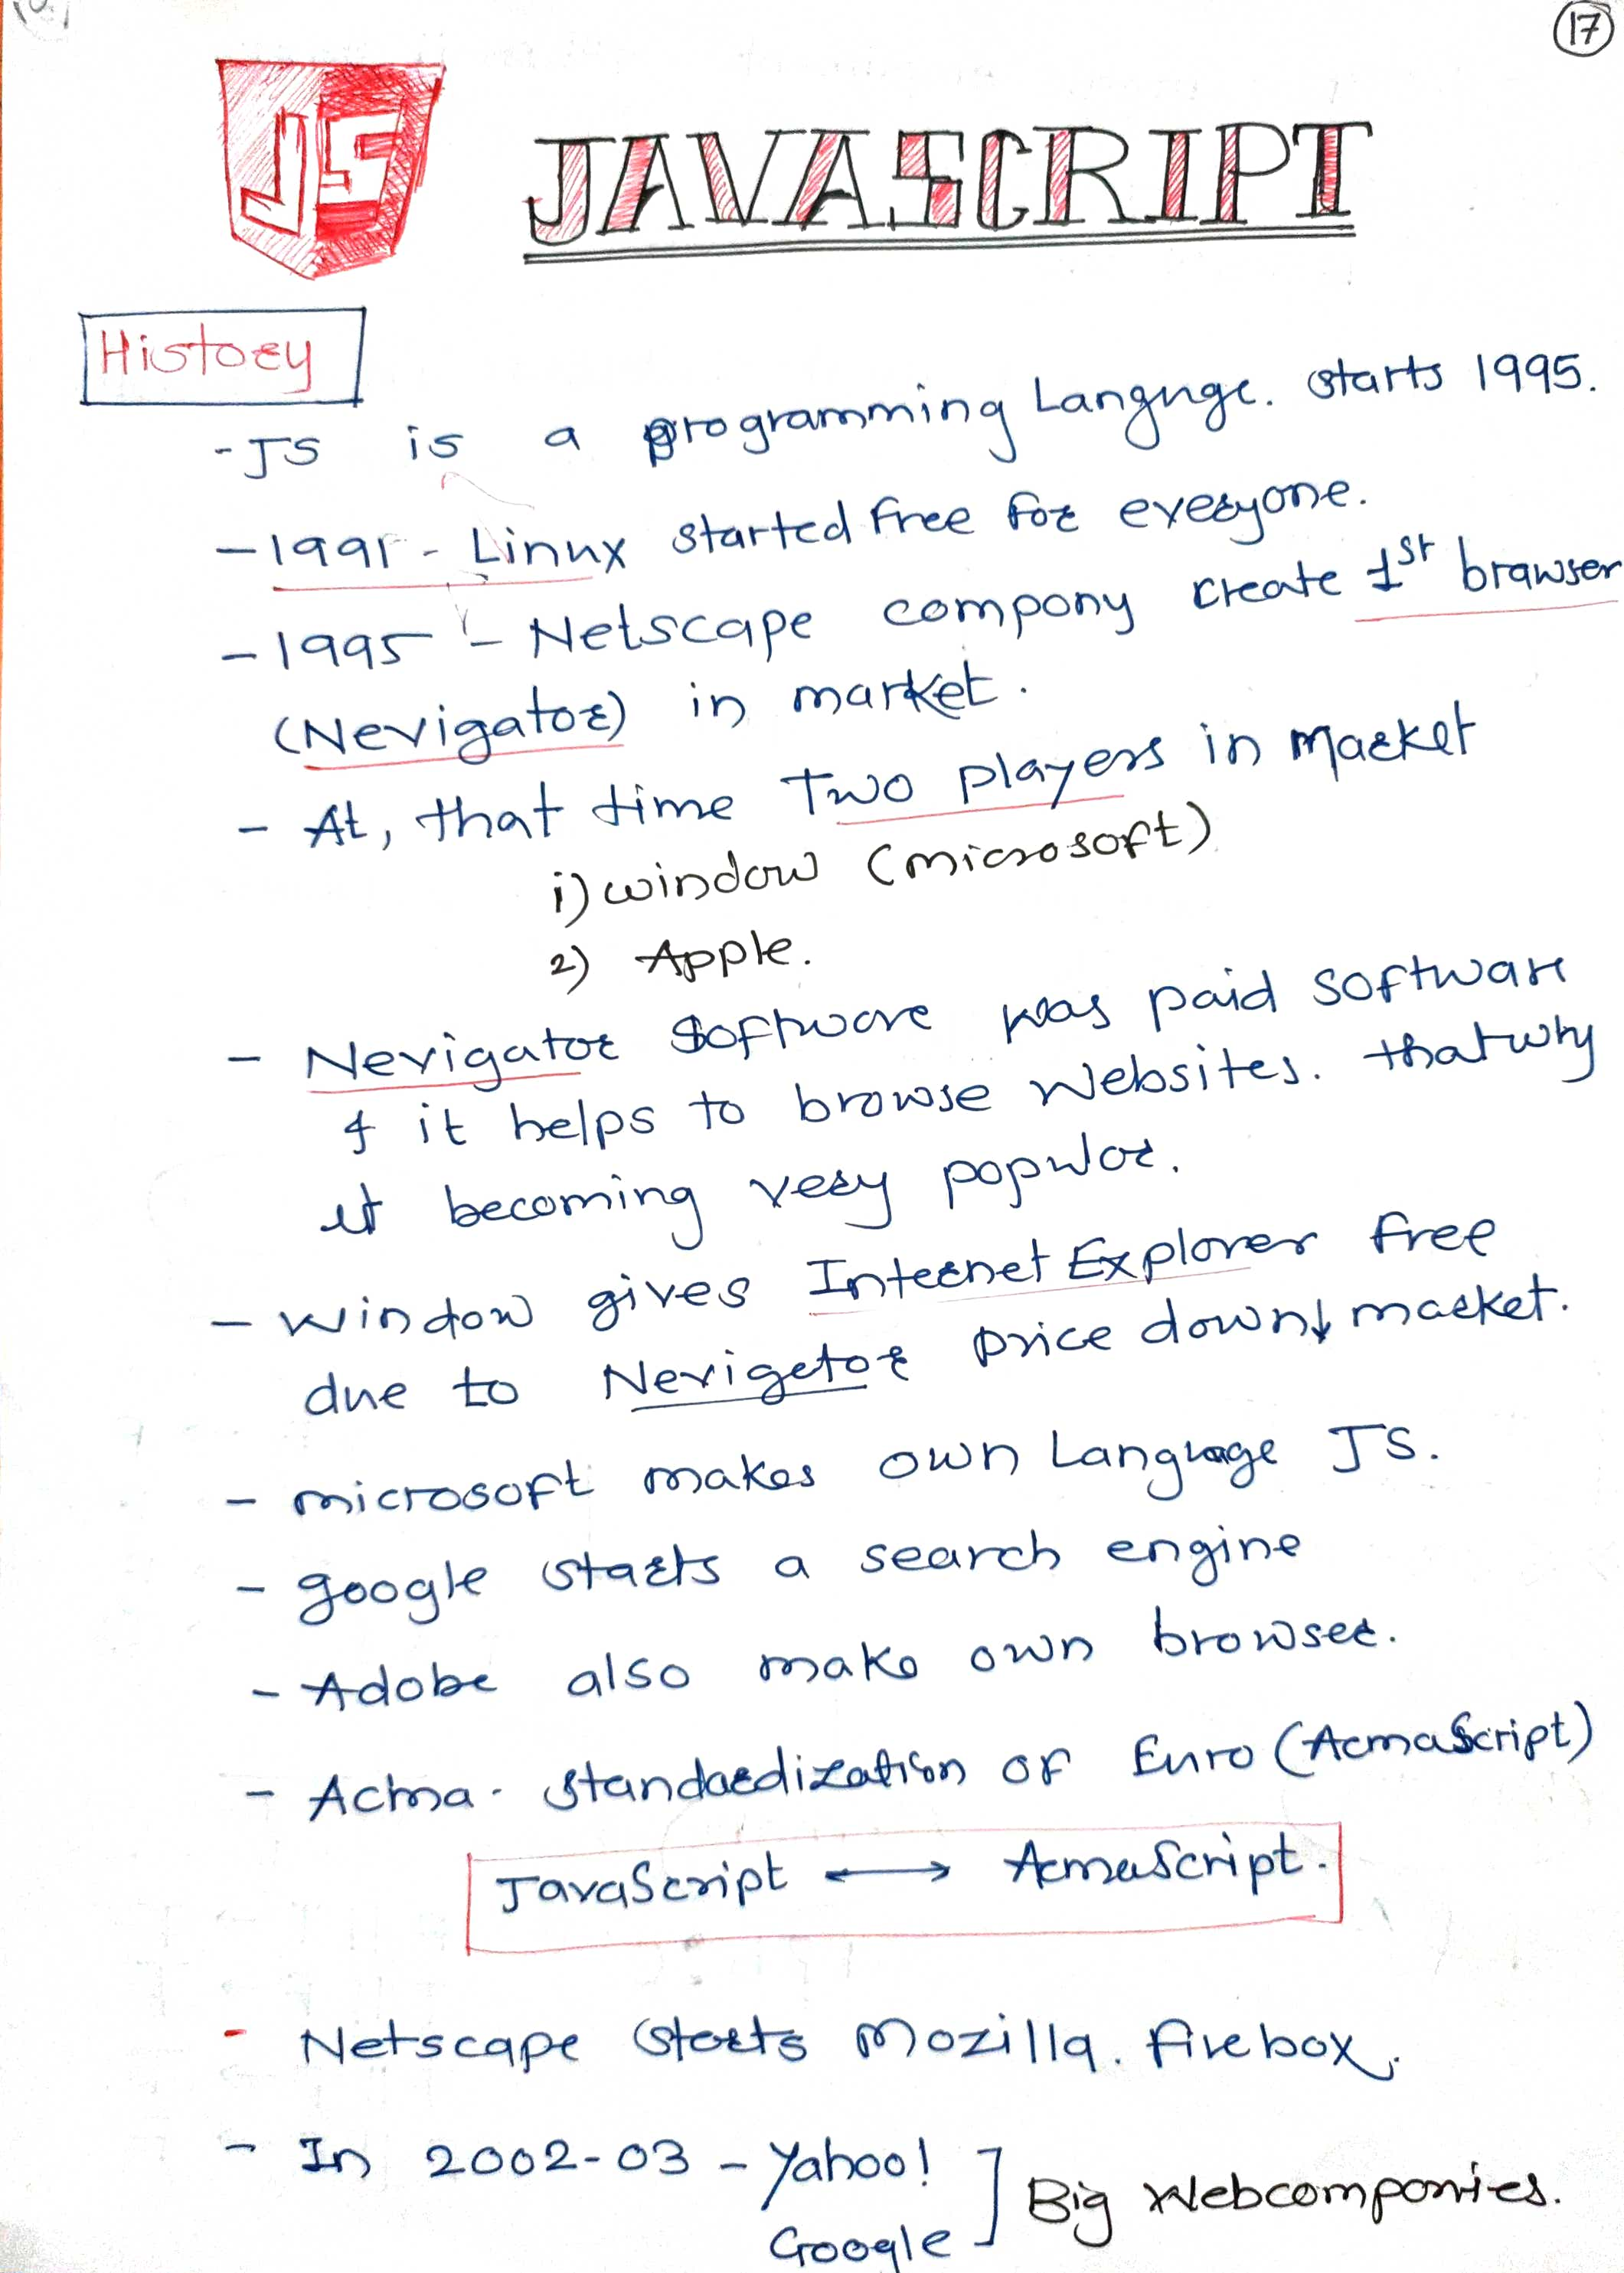 17
JS JAVASCRIPT
History
- JS is a programming Languge. starts 1995.
- 1991 - Linux started free for everyone.
- 1995 - Netscape compony create 1st brawser
(Nevigator) in market.
- At, that time Two players in market
i) window (microsoft)
2) Apple.
- Nevigator Software was paid software
& it helps to browse websites. thatwhy
it becoming very popular.
- window gives Internet Explorer free
due to Nevigetor price down↓ market.
- microsoft makes own Language JS.
- google starts a search engine
- Adobe also make own browser.
- Acma - standardization of Euro (AcmaScript)
JavaScript ⟷ AcmaScript.
- Netscape starts Mozilla. firebox.
- In 2002-03 - Yahoo! ] Big Webcomponies.
Google